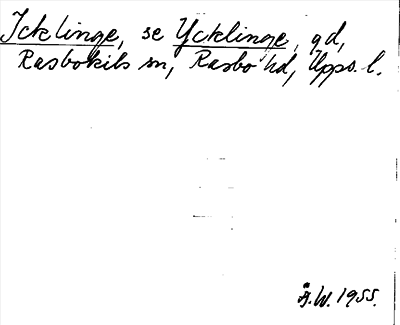 Icklinge, se Ycklinge, gd,
Rasbokils sn, Rasbo hd, Upps. l.
Å.W. 1955.